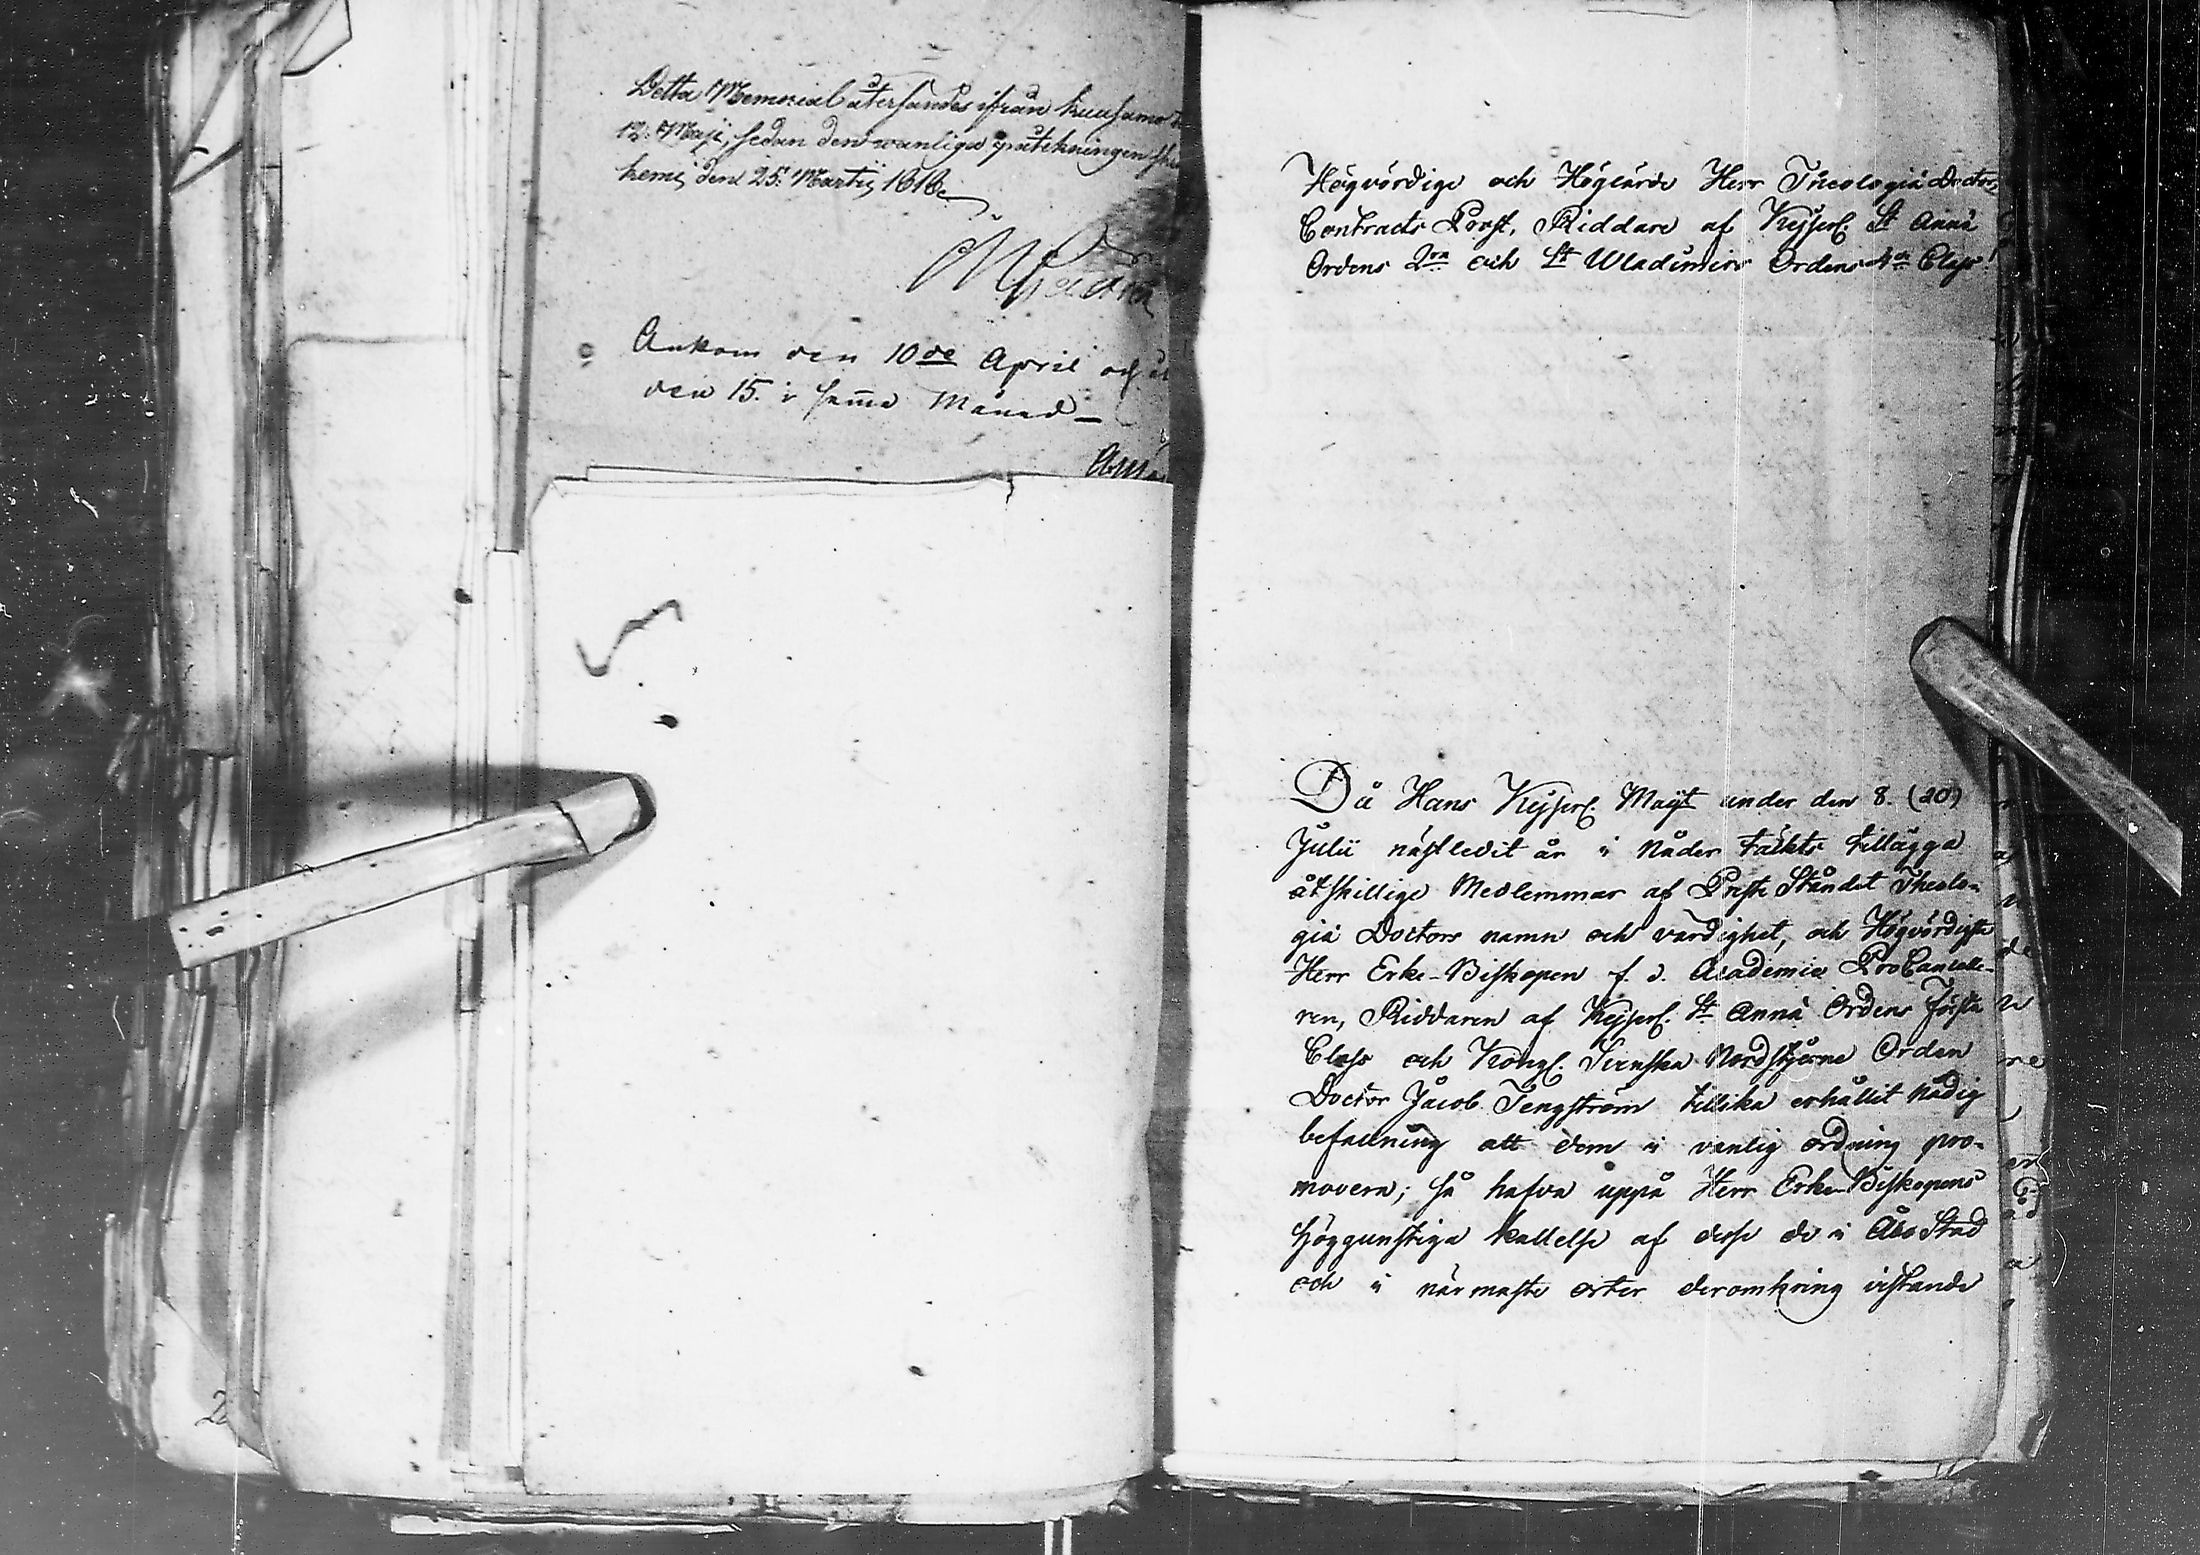 Detta Memorial återsändes ifrån Kuusamo
12. Maji, sedan den wanliga påtekningen
Kemi, den 25. Martii 1818
Ankom den 10de April och
den 15. i samma Månad
Högvördige och Höglärde Herr Theologiä Doctor,
Contracts Prost, Riddare af Kejserl. St Annä
Ordens 2ra och St Wladimirs Ordens 4de Class!
Då Hans Kejserl. Majt under den 8. (20)
Julii nästledit år i Nåder täckts tillägga
åtskillige Medlemmar af Preste Ståndet Theolo-
giä Doctors namn och värdighet, och Högvördigste
Herr Erke-Biskopen f. d. Academie ProCancelle-
ren, Riddaren af Kejserl. St Annä Ordens Första
Class och Kongl. Svenska Nordstjerne Orden
Doctor Jacob Tengström tillika erhållit Nådig
befallning att dem i vanlig ordning pro-
movera; så hafva uppå Herr Erke-Biskopens
höggunstiga kallelse af desse de i Åbo Stad
och i närmaste orter deromkring vistande